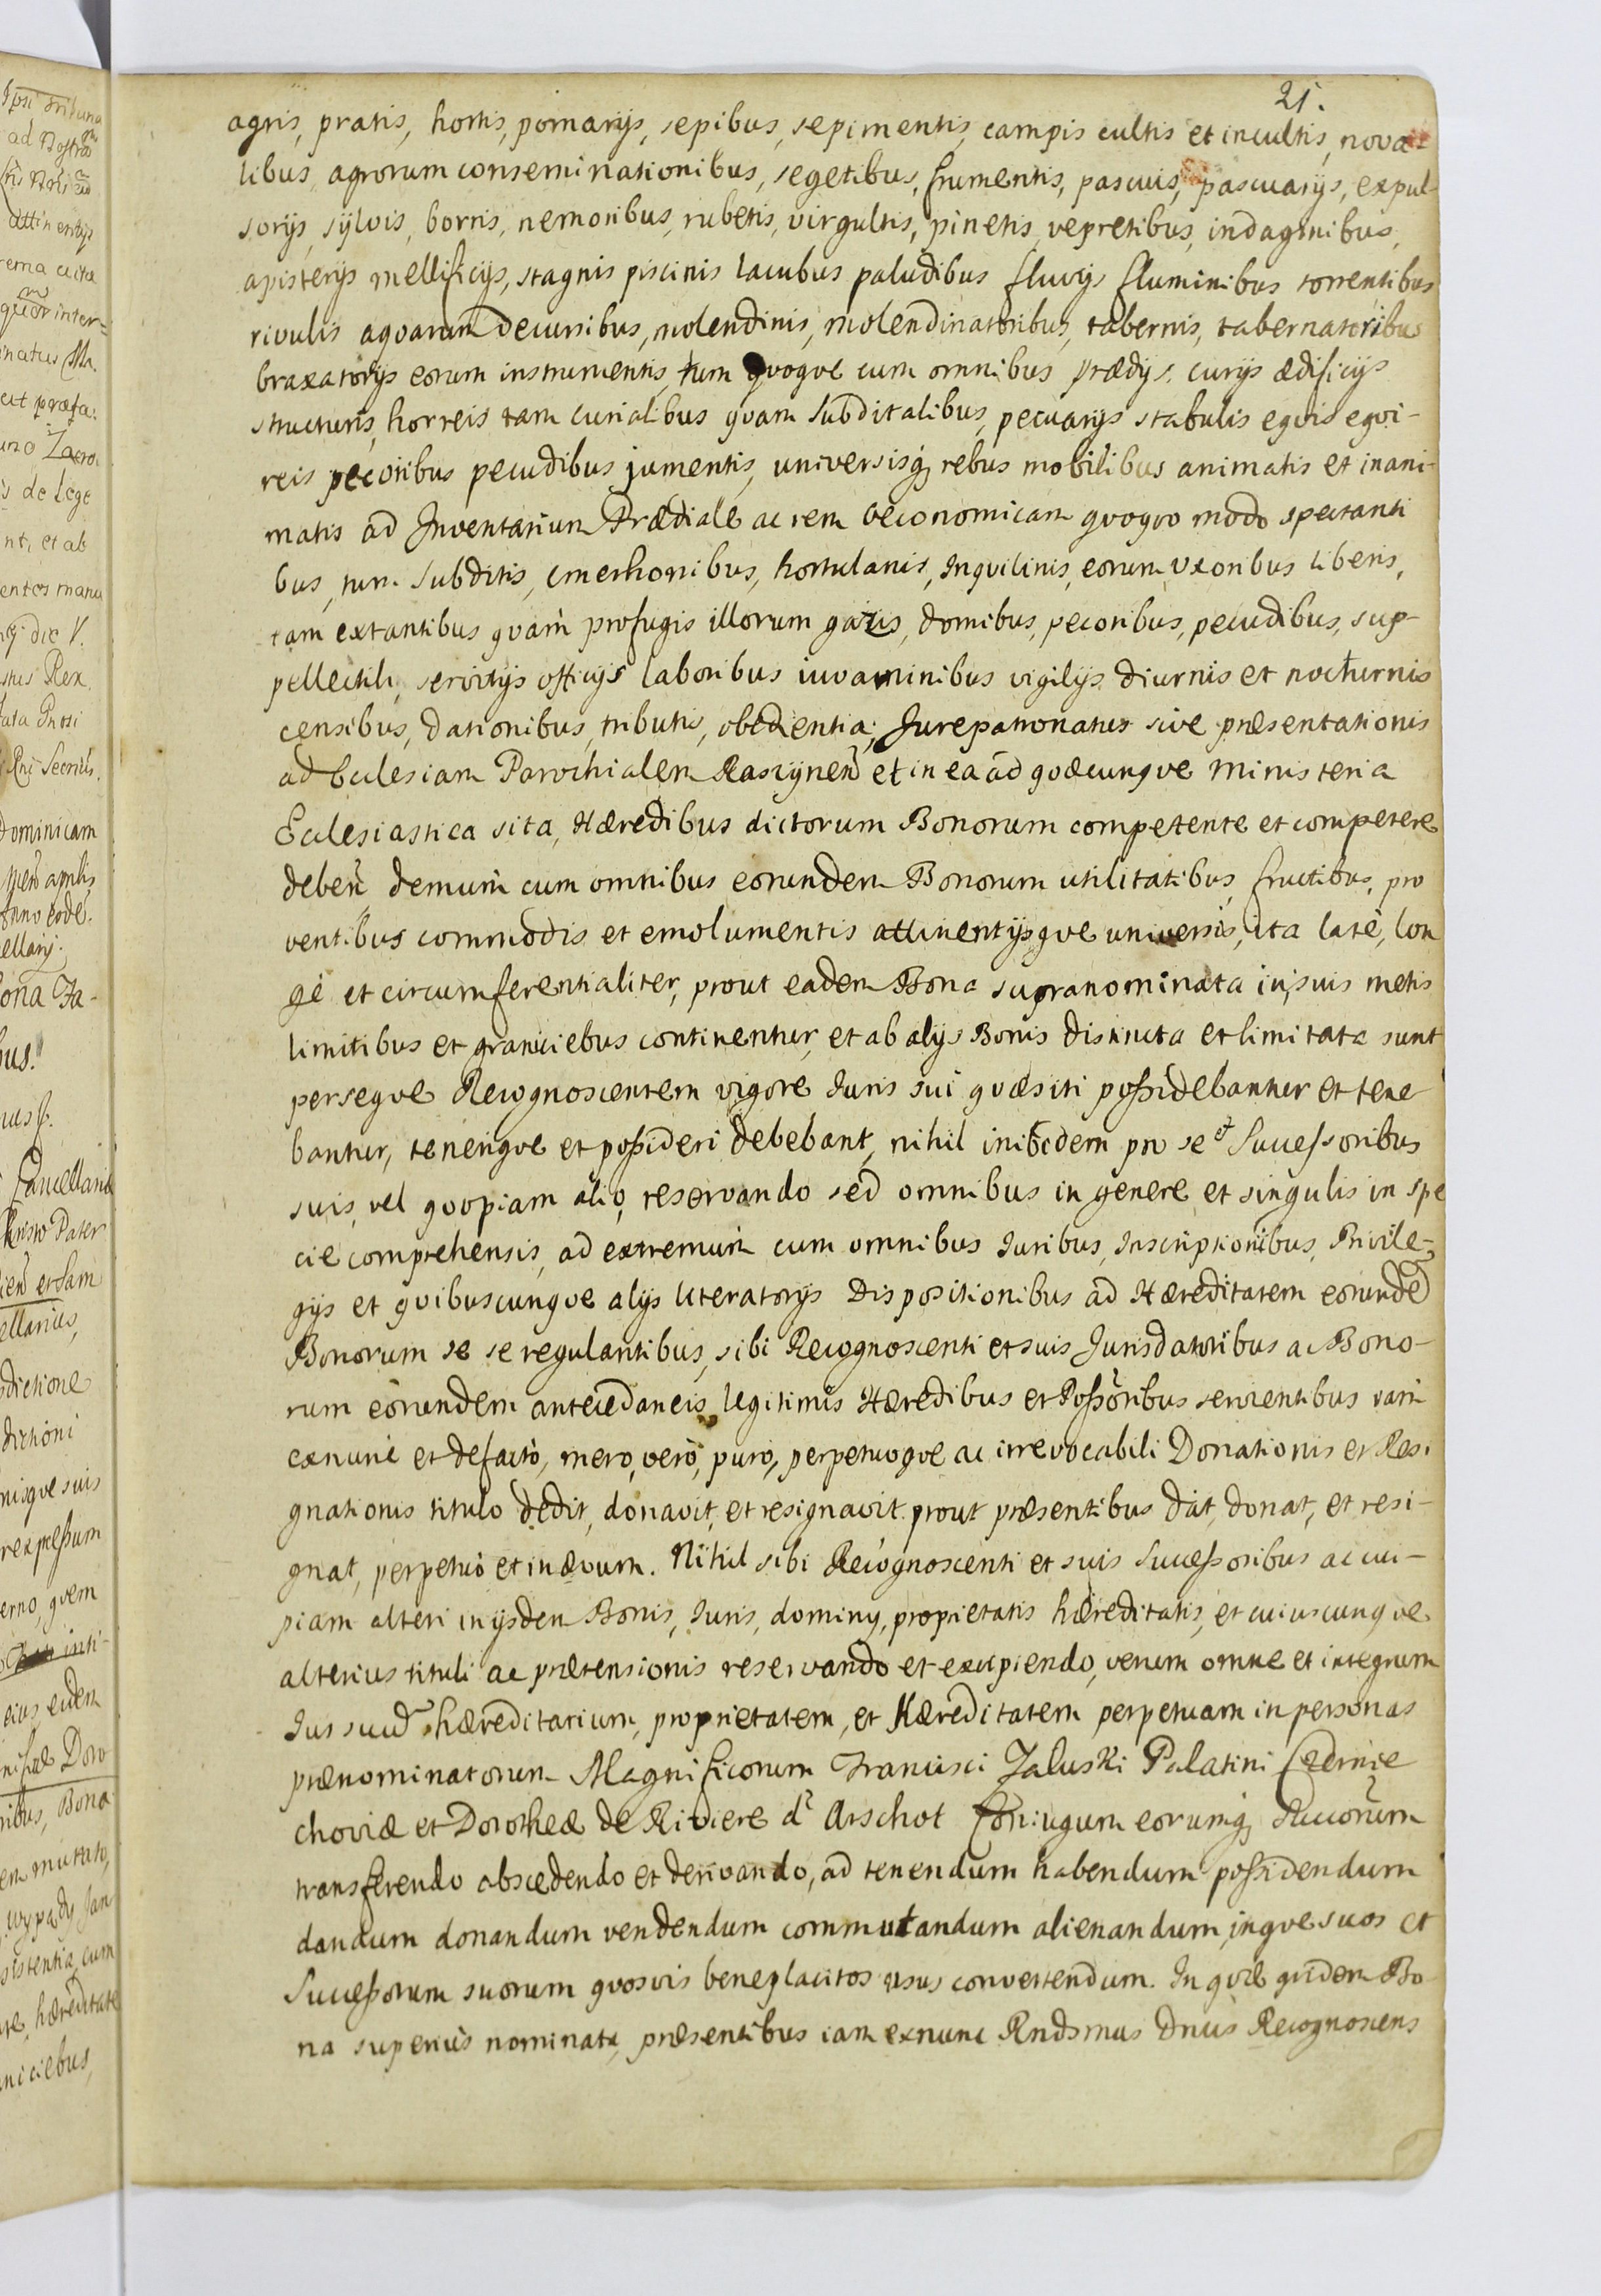 21.
agris, pratis, hortis, pomarijs, sepibus, sepimentis, campis cultis et incultis, nova-
libus, agrorum conseminationibus, segetibus, frumentis, pascuis, pascuarijs, expul-
sorijs, sylvis, borris, nemoribus, rubetis, virgultis, pinetis, vepretibus, indaginibus,
apisterijs mellificijs, stagnis piscinis lacubus paludibus fluvijs fluminibus torrentibus
rivulis aqvarum decursibus, molendinis, molendinatoribus, tabernis, tabernatoribus
braxatorijs eorum instrumentis, tum qvoqve cum omnibus prædijs, curijs ædificijs
structuris, horreis tam curialibus qvam subditalibus, pecuarijs stabulis eqvis eqvi-
reis pecoribus pecudibus jumentis, universisq; rebus mobilibus animatis et inani-
matis ad Inventarium Prædiale ac rem oeconomicam qvoqvo modo spectanti
bus, tum subditis, cmethonibus, hortulanis, Inqvilinis, eorum uxoribus liberis,
tam extantibus qvam profugis illorum gazis, domibus, pecoribus, pecudibus, sup-
pellectili, servitijs officijs laboribus iuvaminibus vigilijs diurnis et nocturnis
censibus, dationibus, tributis, obedientia; Jurepatronatus sive præsentationis
ad Eccl̃esiam Parochialem Rasijnen̄ et in ea ad qvæcunqve ministeria
Ecclesiastica sita, Hæredibus dictorum Bonorum competente et competere
deben̄ demum cum omnibus eorundem Bonorum utilitatibus, fructibus, pro
ventibus commodis et emolumentis attinentijsqve universis, ita latè, lon
gè et circumferentialiter, prout eadem Bona supranominata in suis metis
limitibus et graniciebus continentur, et ab alijs Bonis distincta et limitata sunt
perseqve Recognoscentem vigore Juris sui qvæsiti possidebantur et tene
bantur, teneriqve et possideri debebant, nihil inibidem pro se et Successoribus
suis, vel qvopiam alio, reservando sed omnibus in genere et singulis in spe
cie comprehensis, ad extremum cum omnibus Juribus, Inscriptionibus, Privile-
gijs et qvibuscunqve alijs literatorijs Dispositionibus ad Hæreditatem eorundē
Bonorum se se regulantibus, sibi Recognoscenti et suis Jurisdatoribus ac Bono-
rum eorundem antecedaneis, legitimis Hæredibus et Possōribus servientibus iam
exnunc et defacto, mero, verò, puro, perpetuoqve ac irrevocabili Donationis et Resi
gnationis titulo dedit, donavit, et resignavit prout præsentibus dat, donat, et resi-
gnat, perpetuò et in ævum. Nihil sibi Recognoscenti et suis Successoribus ac cui-
piam alteri in ijsdem Bonis, Juris, dominij, proprietatis hæreditatis, et cuiuscunqve
alterius tituli ac prætensionis reservando et excipiendo, verum omne et integrum
Jus suū hæreditarium, proprietatem, et Hæreditatem perpetuam in personas
prænominatorum Magnificorum Francisci Zaluski Palatini Czernie
choviæ et Dorotheæ de Riviere d' Arschot Coniugum eorumq; Succōrum
transferendo abscedendo et derivando, ad tenendum habendum possidendum
dandum donandum vendendum commutandum alienandum, inqve suos et
Successorum suorum qvosvis beneplacitos usus convertendum. In qvæ qvidem Bo-
na superius nominata, præsentibus iam exnunc Rndsmus Dnus Recognoscens